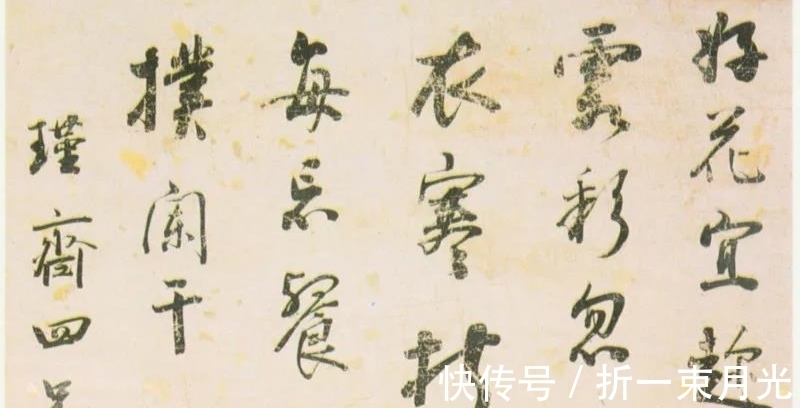 好花宜
霞彩忽
衣寒
每忘餐
撲闌干
瑾齋四兄
快传号 / 折一束月光